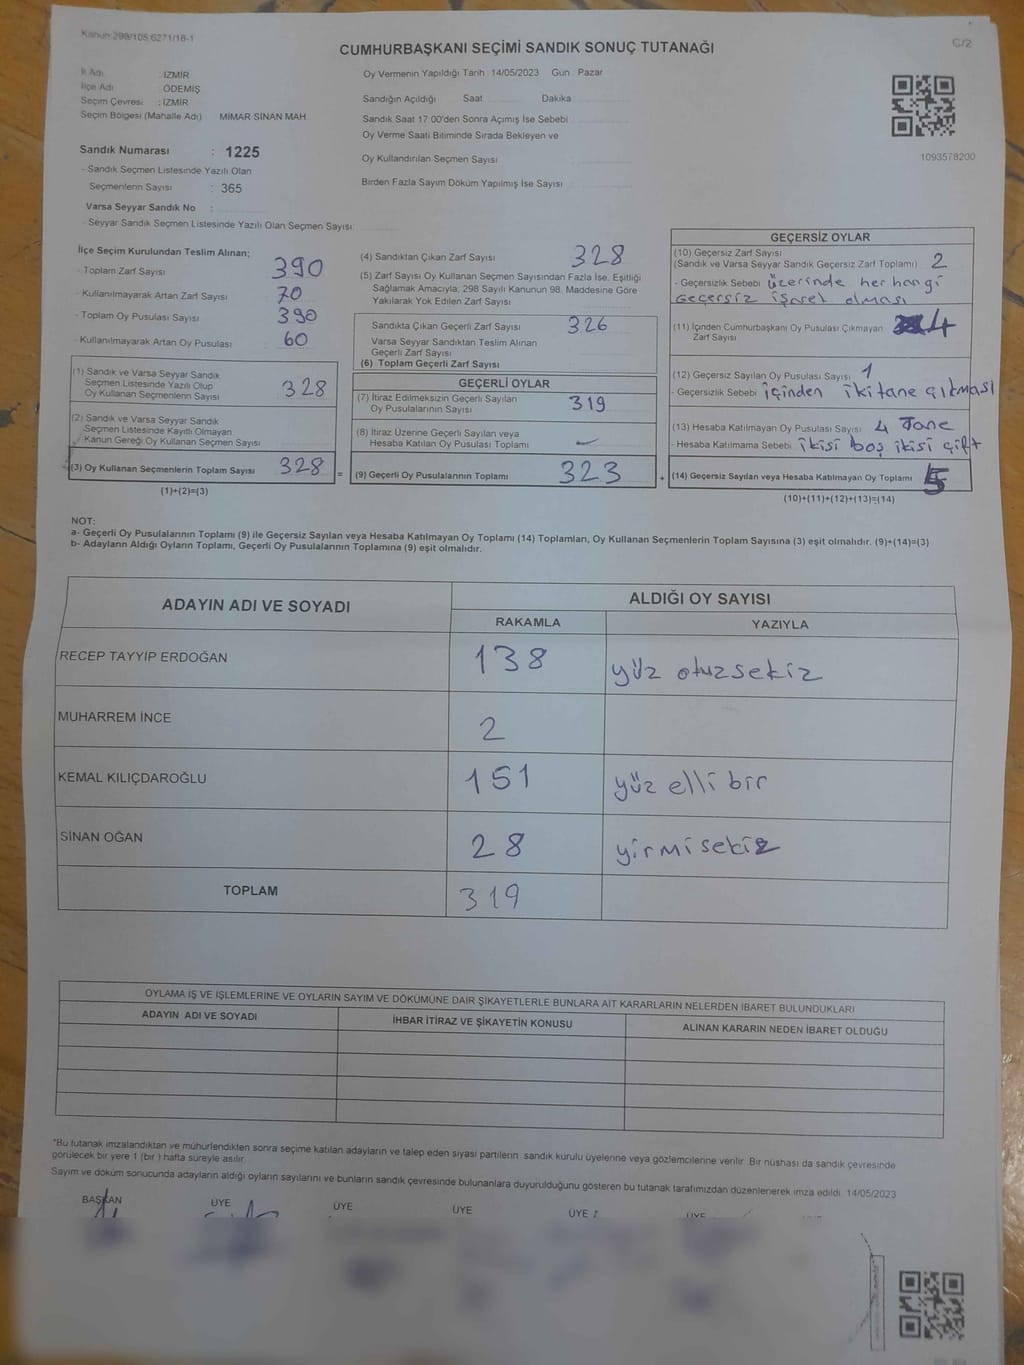 Kanun:298/105;6271/18-1
C/2
CUMHURBAŞKANI SEÇİMİ SANDIK SONUÇ TUTANAĞI
İl Adı : İZMİR
İlçe Adı : ÖDEMİŞ
Seçim Çevresi : İZMİR
Seçim Bölgesi (Mahalle Adı) MİMAR SİNAN MAH.
Sandık Numarası : 1225
- Sandık Seçmen Listesinde Yazılı Olan
Seçmenlerin Sayısı : 365
Varsa Seyyar Sandık No :
- Seyyar Sandık Seçmen Listesinde Yazılı Olan Seçmen Sayısı:
Oy Vermenin Yapıldığı Tarih : 14/05/2023 Gün : Pazar
Sandığın Açıldığı Saat Dakika
Sandık Saat 17:00'den Sonra Açımış İse Sebebi
Oy Verme Saati Bitiminde Sırada Bekleyen ve
Oy Kullandırılan Seçmen Sayısı :
Birden Fazla Sayım Döküm Yapılmış İse Sayısı
1093578200
İlçe Seçim Kurulundan Teslim Alınan;
- Toplam Zarf Sayısı : 390
- Kullanılmayarak Artan Zarf Sayısı : 70
- Toplam Oy Pusulası Sayısı : 390
- Kullanılmayarak Artan Oy Pusulası : 60
(1) Sandık ve Varsa Seyyar Sandık
Seçmen Listesinde Yazılı Olup
Oy Kullanan Seçmenlerin Sayısı : 328
(2) Sandık ve Varsa Seyyar Sandık
Seçmen Listesinde Kayıtlı Olmayan
Kanun Gereği Oy Kullanan Seçmen Sayısı :
(3) Oy Kullanan Seçmenlerin Toplam Sayısı : 328 =
(1)+(2)=(3)
(4) Sandıktan Çıkan Zarf Sayısı : 328
(5) Zarf Sayısı Oy Kullanan Seçmen Sayısından Fazla İse, Eşitliği
Sağlamak Amacıyla; 298 Sayılı Kanunun 98. Maddesine Göre
Yakılarak Yok Edilen Zarf Sayısı :
Sandıkta Çıkan Geçerli Zarf Sayısı : 326
Varsa Seyyar Sandıktan Teslim Alınan
Geçerli Zarf Sayısı :
(6) Toplam Geçerli Zarf Sayısı :
GEÇERLİ OYLAR
(7) İtiraz Edilmeksizin Geçerli Sayılan
Oy Pusulalarının Sayısı : 319
(8) İtiraz Üzerine Geçerli Sayılan veya
Hesaba Katılan Oy Pusulası Toplamı : -
(9) Geçerli Oy Pusulalarının Toplamı : 323 +
GEÇERSİZ OYLAR
(10) Geçersiz Zarf Sayısı
(Sandık ve Varsa Seyyar Sandık Geçersiz Zarf Toplamı) : 2
- Geçersizlik Sebebi : üzerinde her hangi
geçersiz işaret olması
(11) İçinden Cumhurbaşkanı Oy Pusulası Çıkmayan
Zarf Sayısı : 4
(12) Geçersiz Sayılan Oy Pusulası Sayısı : 1
- Geçersizlik Sebebi : içinden iki tane çıkması
(13) Hesaba Katılmayan Oy Pusulası Sayısı : 4 Tane
- Hesaba Katılmama Sebebi : ikisi boş ikisi çift
(14) Geçersiz Sayılan veya Hesaba Katılmayan Oy Toplamı : 5
(10)+(11)+(12)+(13)=(14)
NOT:
a- Geçerli Oy Pusulalarının Toplamı (9) ile Geçersiz Sayılan veya Hesaba Katılmayan Oy Toplamı (14) Toplamları, Oy Kullanan Seçmenlerin Toplam Sayısına (3) eşit olmalıdır. (9)+(14)=(3)
b- Adayların Aldığı Oyların Toplamı, Geçerli Oy Pusulalarının Toplamına (9) eşit olmalıdır.
ADAYIN ADI VE SOYADI ALDIĞI OY SAYISI
RAKAMLA YAZIYLA
RECEP TAYYİP ERDOĞAN 138 yüz otuzsekiz
MUHARREM İNCE 2
KEMAL KILIÇDAROĞLU 151 yüz elli bir
SİNAN OĞAN 28 yirmisekiz
TOPLAM 319
OYLAMA İŞ VE İŞLEMLERİNE VE OYLARIN SAYIM VE DÖKÜMÜNE DAİR ŞİKAYETLERLE BUNLARA AİT KARARLARIN NELERDEN İBARET BULUNDUKLARI
ADAYIN ADI VE SOYADI İHBAR İTİRAZ VE ŞİKAYETİN KONUSU ALINAN KARARIN NEDEN İBARET OLDUĞU
*Bu tutanak imzalandıktan ve mühürlendikten sonra seçime katılan adayların ve talep eden siyasi partilerin sandık kurulu üyelerine veya gözlemcilerine verilir. Bir nüshası da sandık çevresinde
görülecek bir yere 1 (bir ) hafta süreyle asılır.
Sayım ve döküm sonucunda adayların aldığı oyların sayılarını ve bunların sandık çevresinde bulunanlara duyurulduğunu gösteren bu tutanak tarafımızdan düzenlenerek imza edildi. 14/05/2023
BAŞKAN ÜYE ÜYE ÜYE ÜYE ÜYE